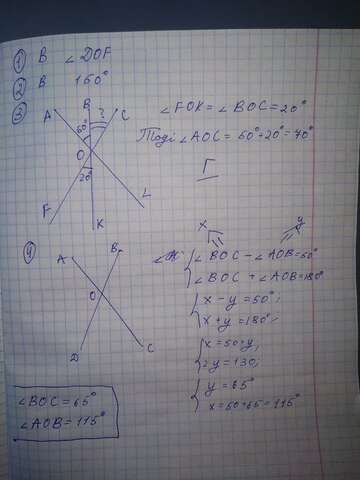 ① В ∠DOF
② В 160°
③
B
A ? C
50°
O
20°
F K L
∠FOK = ∠BOC = 20°
Тоді ∠AOC = 50°+20° = 70°
Г
④
A B
O
D C
x y
∠BOC - ∠AOB = 50°
∠BOC + ∠AOB = 180°
x - y = 50°;
x + y = 180°;
x = 50+y,
2y = 130;
y = 65°
x = 50+65 = 115°
∠BOC = 65°
∠AOB = 115°